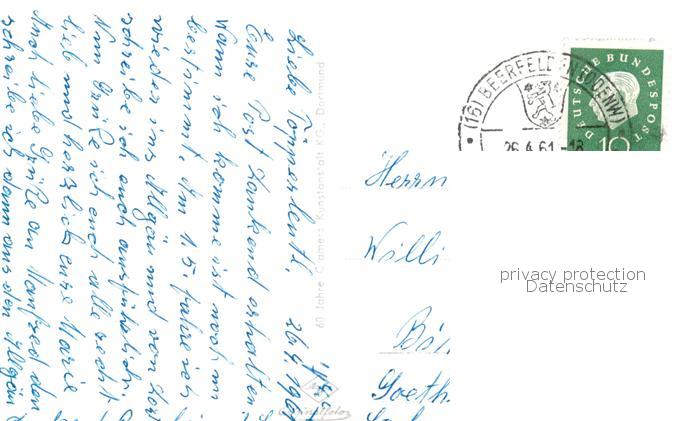 Liebe
26.4.1961
Eure Post dankend erhalten
Wann ich komme ist noch un
bestimmt, Am 1.5. fahre ich
wieder ins Allgäu und von dort
schreibe ich auch ausführlicher.
Nun Grüße ich euch alle recht
lieb und herzlich eure Marie
Auch liebe Grüße an Manfred den
schreibe ich dann aus den Allgäu
60 Jahre Cramers Kunstanstalt KG., Dortmund
(16) BEERFELDEN (ODENW)
26.4.61.-18
DEUTSCHE BUNDESPOST
10
Herrn
Willi
Goeth
privacy protection
Datenschutz